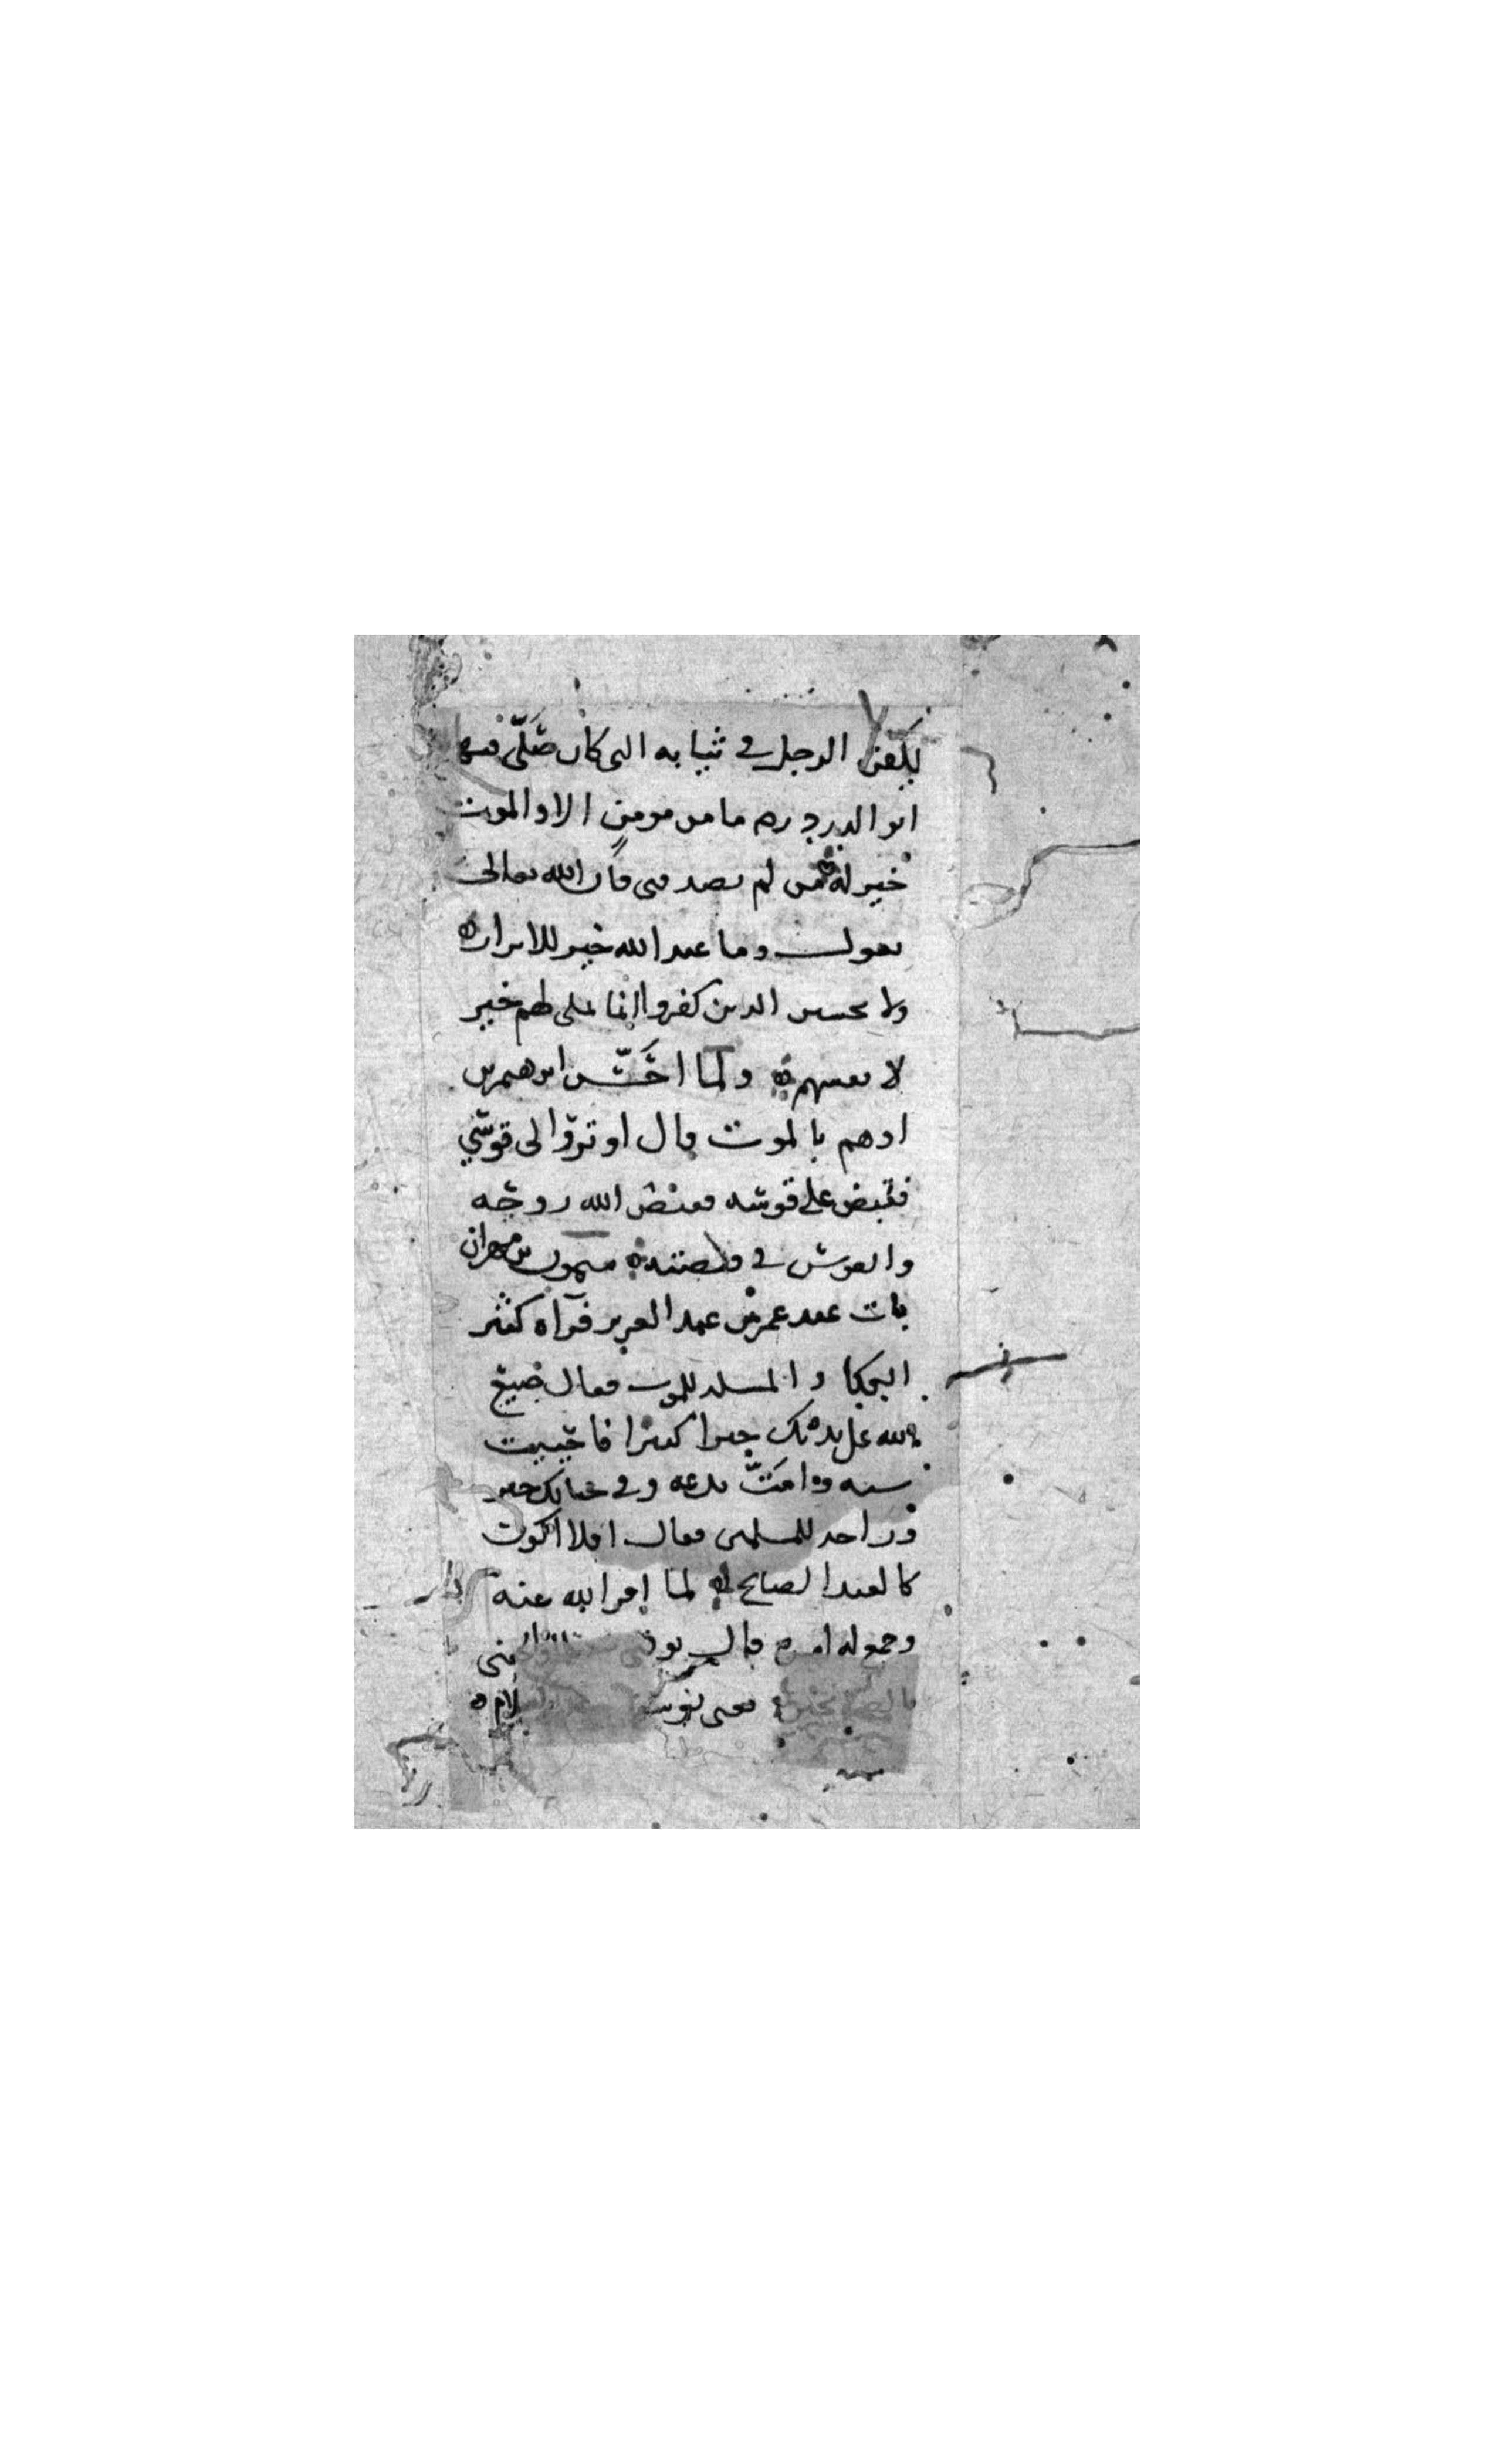 يكفن الرجل في ثيابه التي كان صَلّى فيها
ابو الدرد رم ما من مومنٍ الا والموت
خير له فمن لم يصدقني فان الله تعالى
يقول وما عند الله خير للابرار
ولا يحسبن الذين كفروا انما نملي لهم خير
لا نفسهم ولما احَسَّ ابرهيم بن
ادهم بالموت قال اوتروا لي قوسي
فقبض على قوسه فقبض الله روحه
والقوس في قبضته ميمون بن مهران
بات عند عمر بن عبد العزيز فرآه كثير
البكا والمسله للموت فقال صنع
الله على يديك خيرا كثيرا فاحييت
سنه وامَتَّ بدعه وفي حياتك خير
وراحه للمسلمين فقال افلا اكون
كالعبد الصالح لما اقر الله عينه
وجمع له امره قال توفني والحقني
بالصالحين معنى يوسف السلام